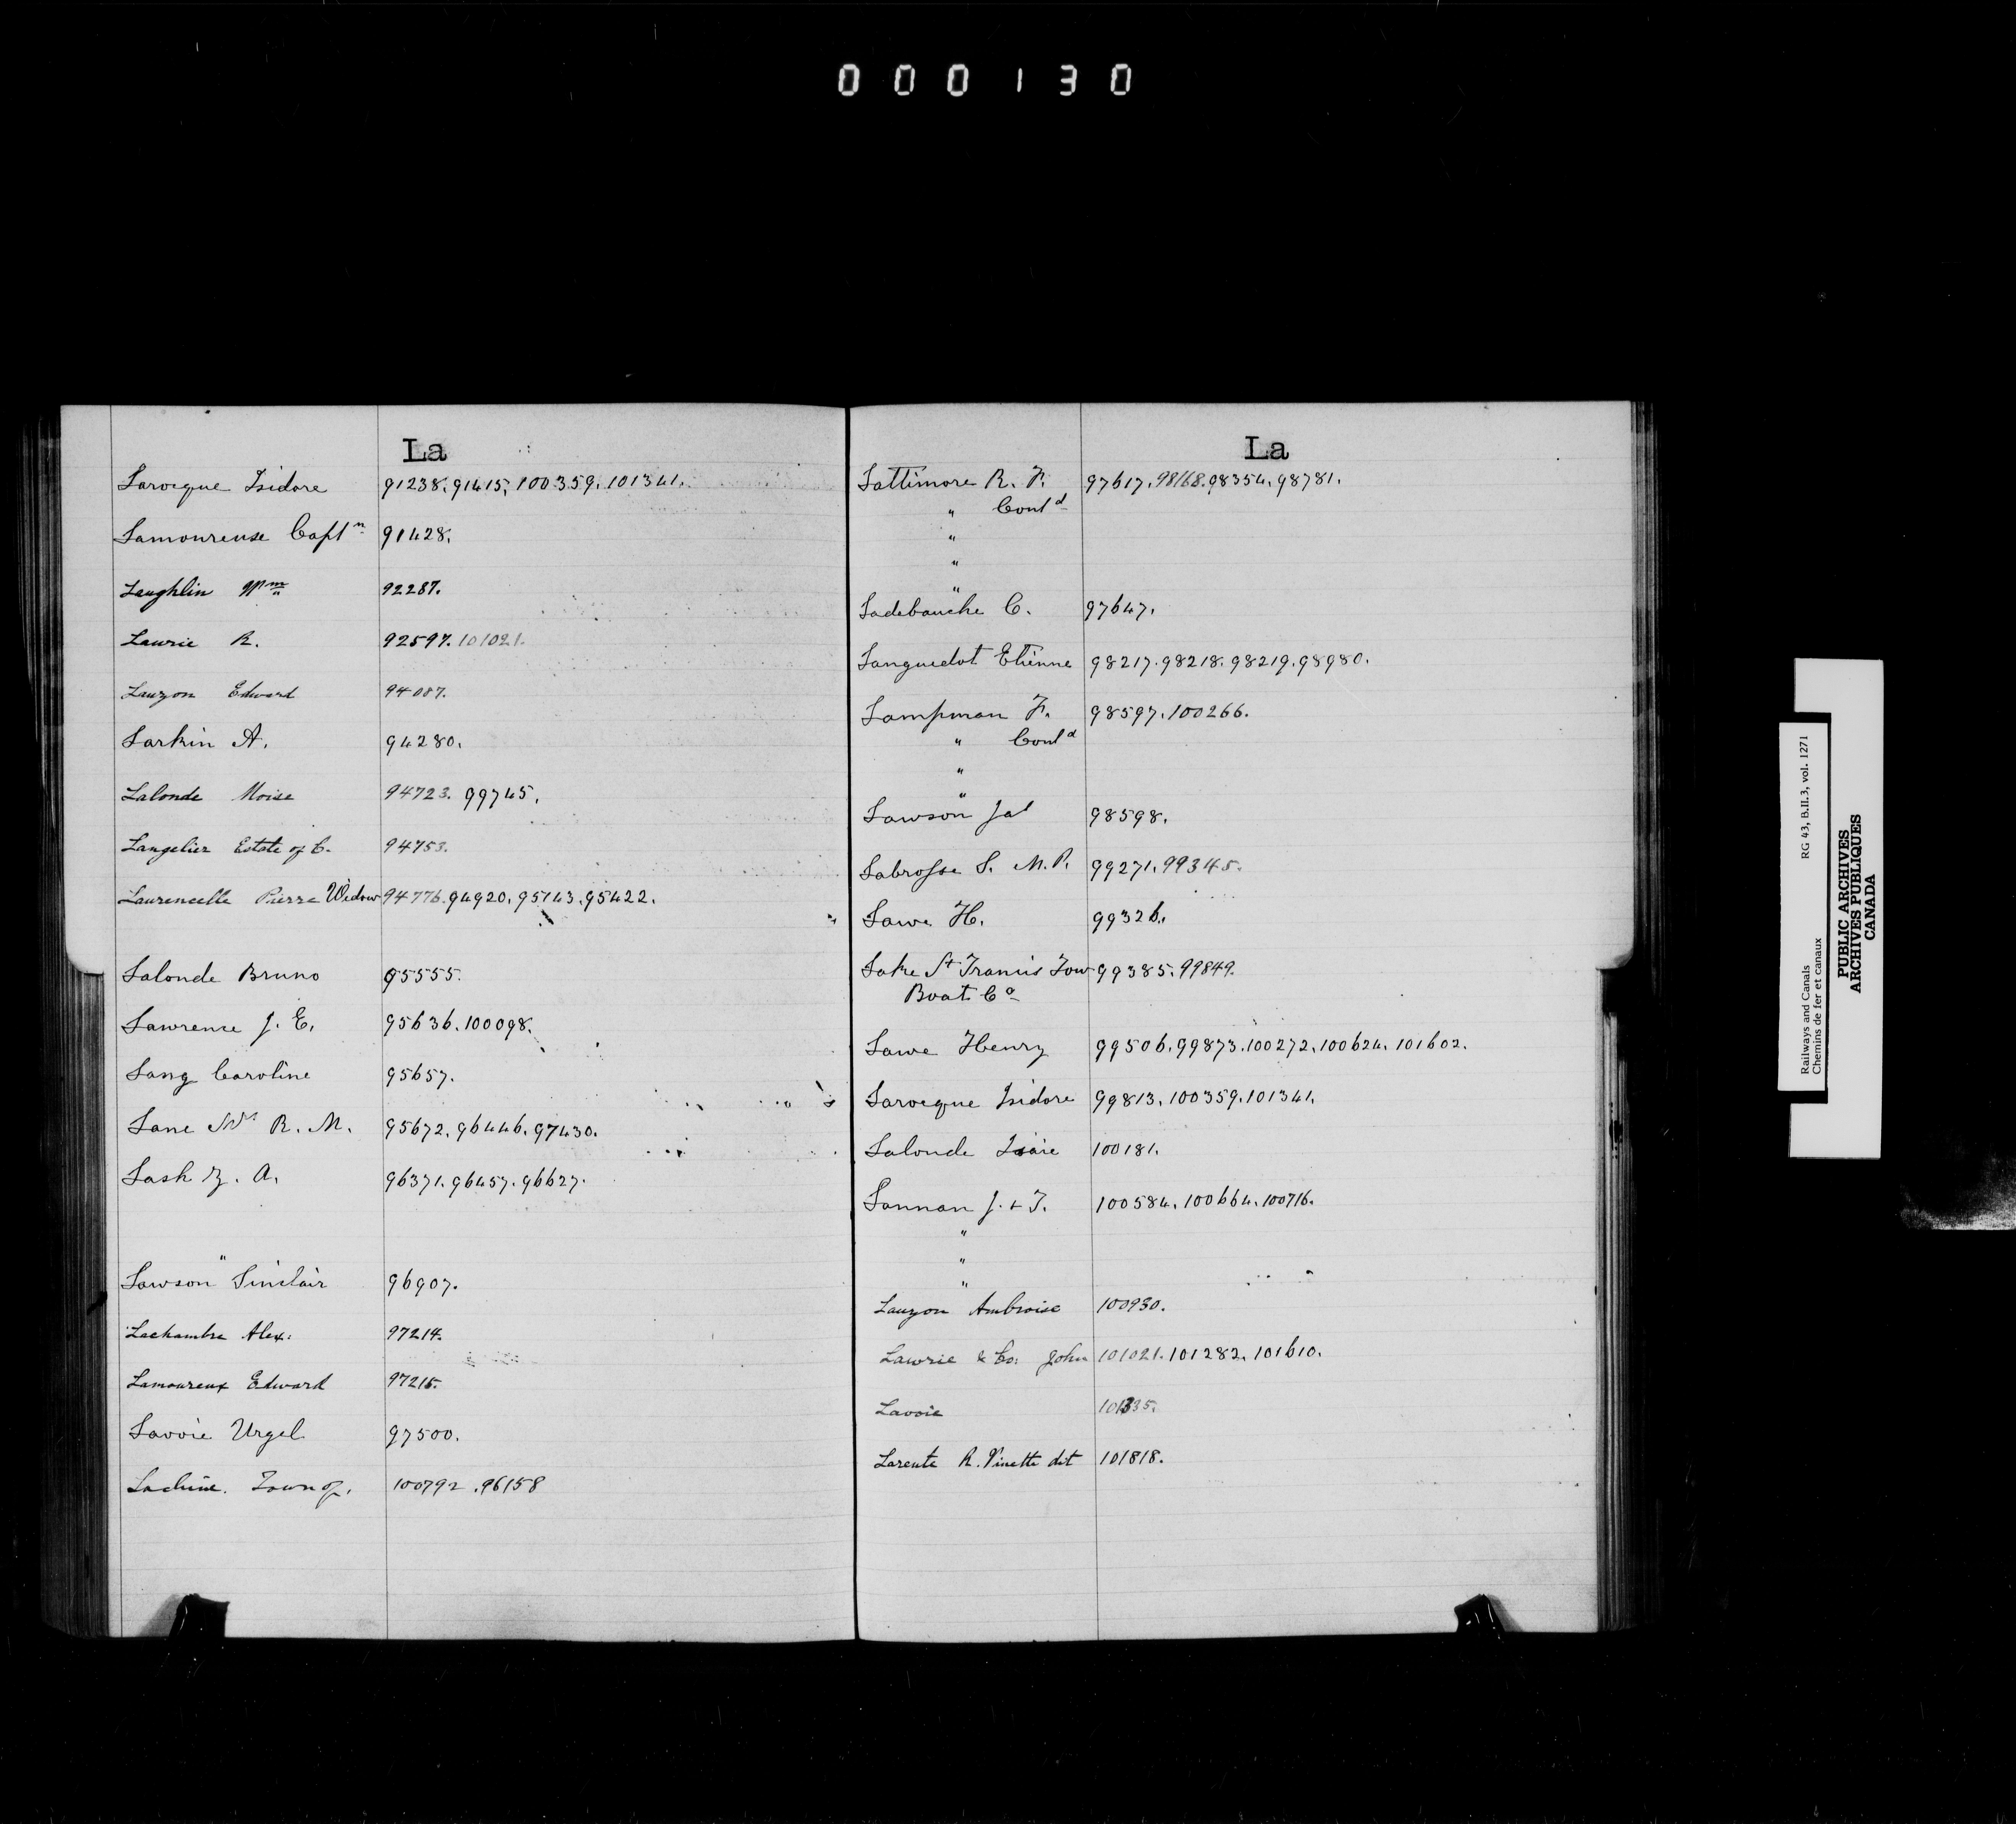 000130
La
Larocque Isidore 91238. 91415. 100359. 101341.
Lamoureuse Captn 91428.
Laughlin Wm 92287.
Laurie R. 92597. 101021.
Lauzon Edward 94087.
Larkin A. 94280.
Lalonde Moise 94723. 99745.
Langelier Estate of C. 94753.
Laurencelle Pierre Widow 94776. 94920. 95143. 95422.
Lalonde Bruno 95555.
Lawrence J. E. 95636. 100098.
Lang Caroline 95657.
Lane Mrs R. M. 95672. 96446. 97430.
Lash Z. A. 96371. 96457. 96627.
"
Lawson Sinclair 96907.
Lachambre Alex: 97214.
Lamoureux Edward 97215.
Lavoie Urgel 97500.
Lachine. Town of. 100792. 96158
La
Lattimore R. F. 97617. 98168. 98354. 98781.
" Contd
"
"
"
Ladebauche C. 97647.
Languedot Etienne 98217. 98218. 98219. 98980.
Lampman F. 98597. 100266.
" Contd
"
"
Lawson Jas 98598.
Labrosse S. M.P. 99271. 99345.
Lawe H. 99326.
Lake St Francis Tow 99385. 99849.
Boat Co
Lawe Henry 99506. 99873. 100272. 100624. 101602.
Larocque Isidore 99813. 100359. 101341.
Lalonde Isaie 100181.
Lannan J. & T. 100584. 100664. 100716.
"
"
"
Lauzon Ambroise 100930.
Lawrie & Co: John 101021. 101282. 101610.
Lavoie 101335.
Larente R. Pinette dit 101818.
Railways and Canals RG 43, B.II.3, vol. 1271
Chemins de fer et canaux
PUBLIC ARCHIVES
ARCHIVES PUBLIQUES
CANADA